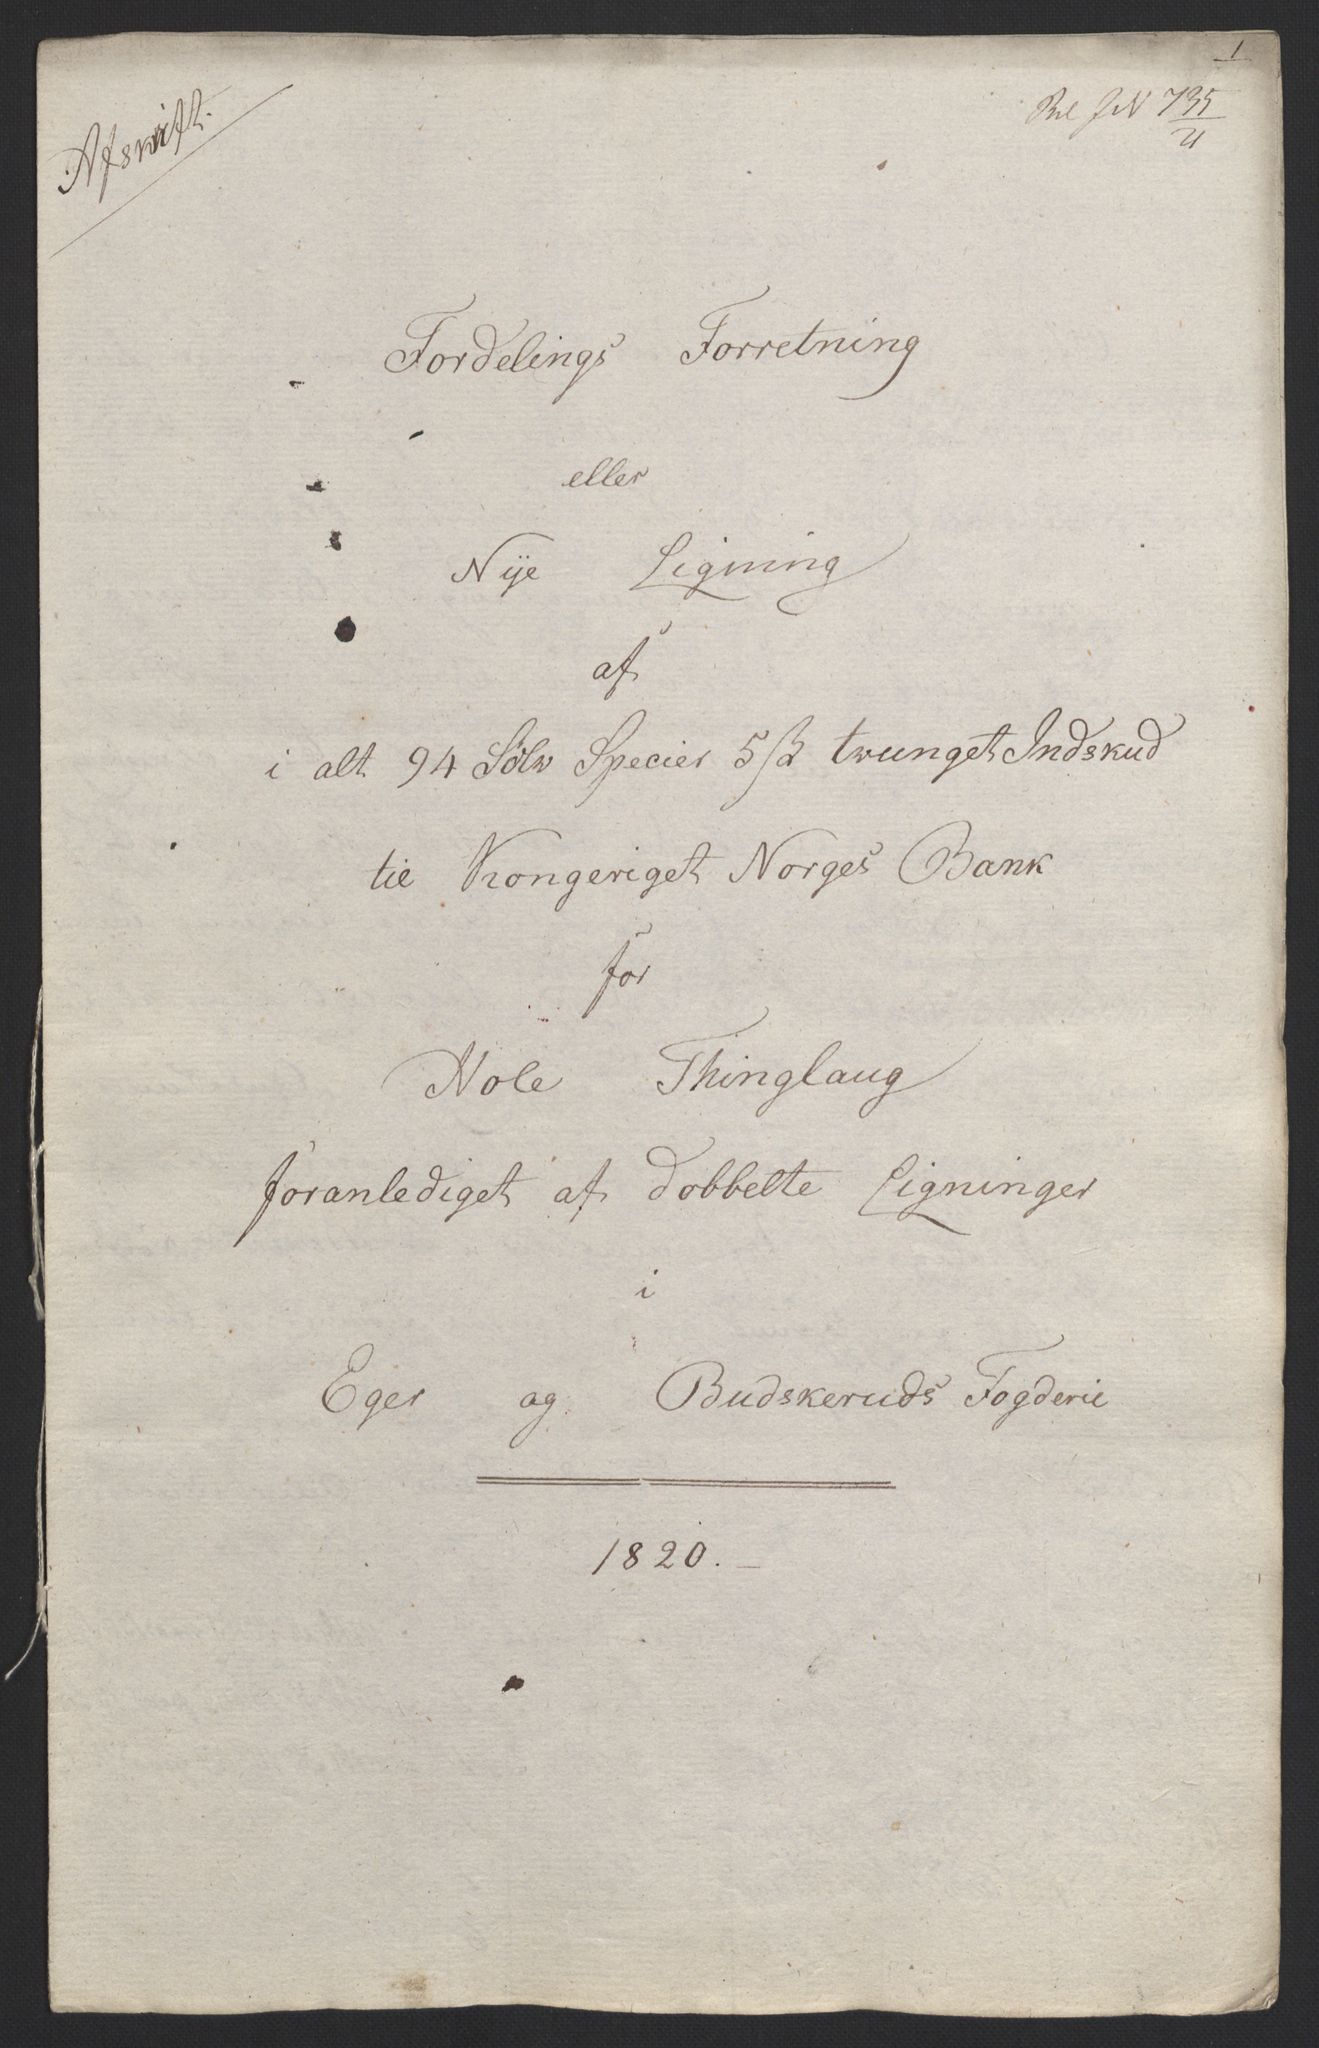 1
Afskrift.
Bil JN 735/21
Fordelings Forretning
eller
Nÿe Ligning
af
i alt 94 Sölv Species 5 ß twunget Indskud
til Kongeriget Norges Bank
for
Hole Thinglaug
foranlediget af dobbelte Ligninger
i
Eger og Budskeruds Fogderie
1820.